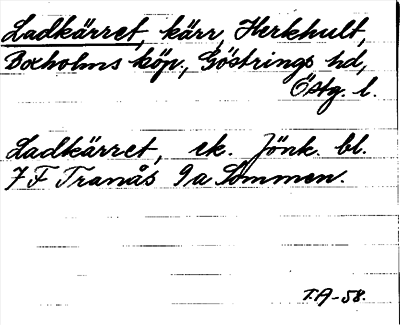 Ladkärret, kärr, Herkhult,
Boxholms köp., Göstrings hd,
Östg. l.
Ladkärret, ek. Jönk. bl.
7 F Tranås 9a Sommen.
T.A-58.